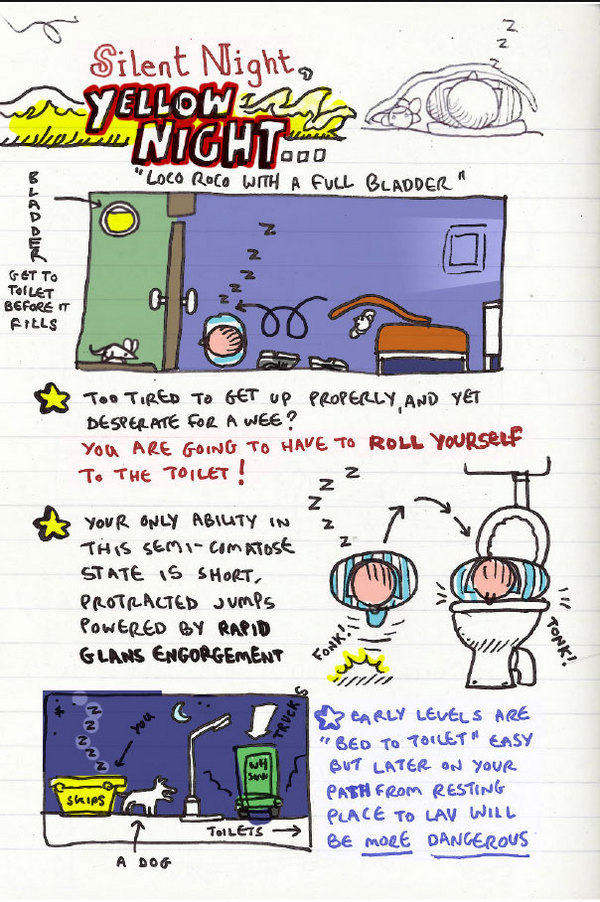 Z
Z
Z
Silent Night,
YELLOW
NIGHT...
"LOCO ROCO WITH A FULL BLADDER"
BLADDER
GET TO
TOILET
BEFORE IT
FILLS
Z
Z
Z
Z
Z
TOO TIRED TO GET UP PROPERLY, AND YET
DESPERATE FOR A WEE?
YOU ARE GOING TO HAVE TO ROLL YOURSELF
TO THE TOILET!
YOUR ONLY ABILITY IN
THIS SEMI-COMATOSE
STATE IS SHORT,
PROTRACTED JUMPS
POWERED BY RAPID
GLANS ENGORGEMENT
Z
Z
Z
Z
Z
FONK!
TONK!
Z
Z
Z
Z
Z
YOU
TRUCKS
SKIPS
TOILETS
A DOG
EARLY LEVELS ARE
"BED TO TOILET" EASY
BUT LATER ON YOUR
PATH FROM RESTING
PLACE TO LAV WILL
BE MORE DANGEROUS